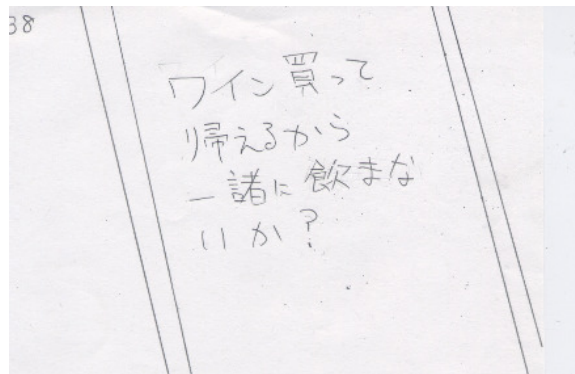 38
ワイン買って
帰えるから
一諸に飲まな
いか?